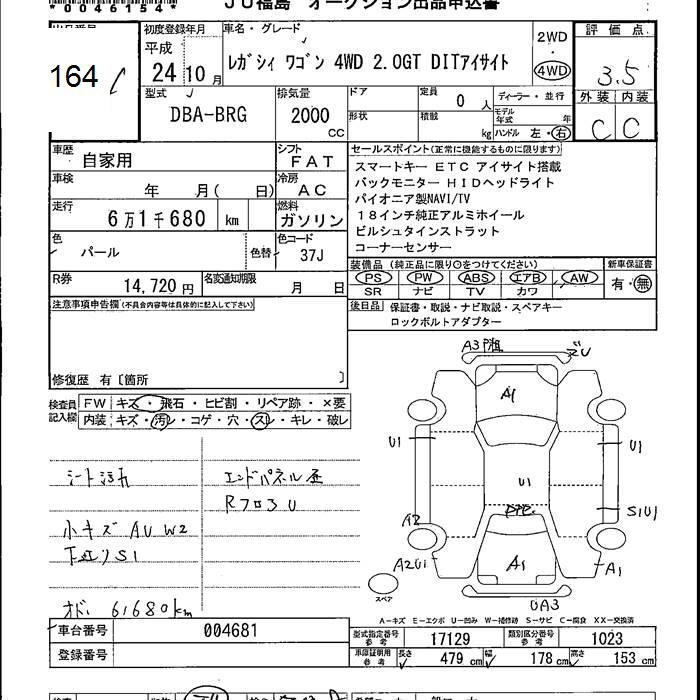 *0046154*
JU福島 オークション出品申込書
164
初度登録年月
平成
24年10月
車名・グレード
レガシィ ワゴン 4WD 2.0GT DITアイサイト
2WD
4WD
評価点
3.5
外装 内装
C C
型式
DBA-BRG
排気量
2000
CC
ドア
形状
定員
0 人
積載
kg
ディーラー・並行
モデル年式 年
ハンドル 左・右
車歴
自家用
シフト
FAT
車検
年 月( 日)
冷房
AC
走行
6万1千680 km
燃料
ガソリン
色
パール
色替
色コード
37J
R券
14,720円
名変通知期限
月 日
セールスポイント(正常に機能するものに限ります)
スマートキー ETC アイサイト搭載
バックモニター HIDヘッドライト
パイオニア製NAVI/TV
18インチ純正アルミホイール
ビルシュタインストラット
コーナーセンサー
装備品(純正品に限り○をつけてください)
PS PW ABS エアB AW
SR ナビ TV カワ
新車保証書
有・無
後日品 保証書・取説・ナビ取説・スペアキー
ロックボルトアダプター
注意事項申告欄(不具合内容等は具体的に記入して下さい)
修復歴 有〔箇所 〕
検査員記入欄
FW キズ・飛石・ヒビ割・リペア跡・×要
内装 キズ・汚レ・コゲ・穴・スレ・キレ・破レ
シート汚れ
エンドパネル歪
Rフロア U
小キズ AU W2
下廻りS1
オド 61680km
A3
ズU
A1
U1
U1
U1
A2
S1U1
A2U1
A1
A1
UA3
スペア
A-キズ E-エクボ U-凹み W-補修跡 S-サビ C-腐食 XX-交換済
車台番号 004681
登録番号
型式指定番号 参考 17129
類別区分番号 参考 1023
車庫証明用 参考 長さ 479cm 幅 178cm 高さ 153cm